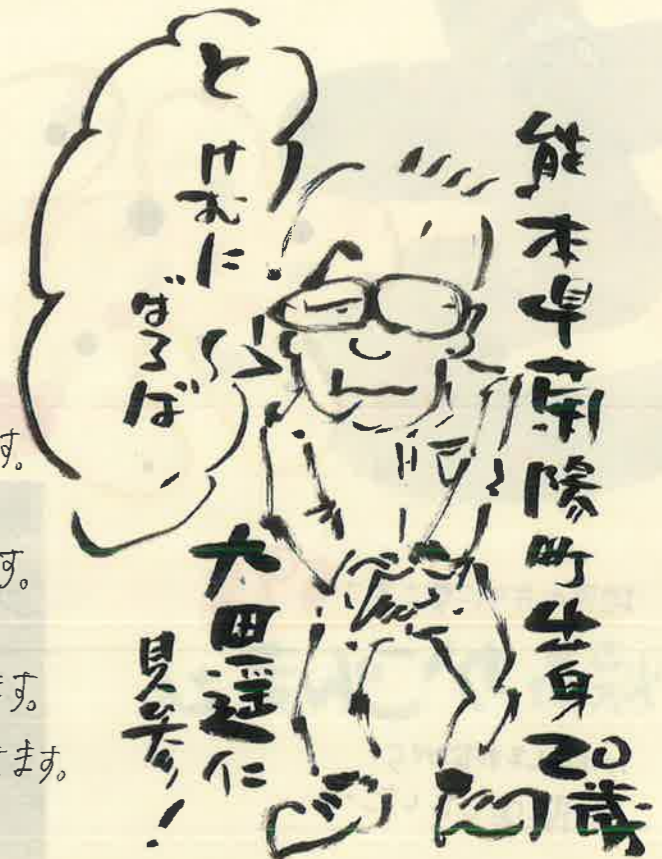 熊本県菊陽町出身20歳
大田遥仁
見参！
と
けむに
ばろば
す。
す。
ます。
ます。